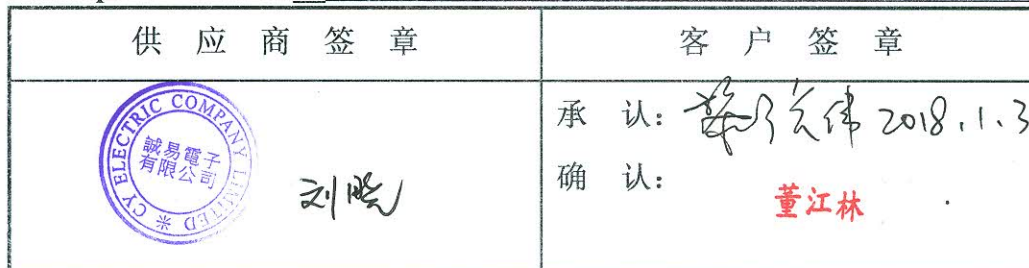 供应商签章
客户签章
CY ELECTRIC COMPANY LIMITED
誠易電子
有限公司
刘晓
承认：
2018.1.3
确认：
董江林